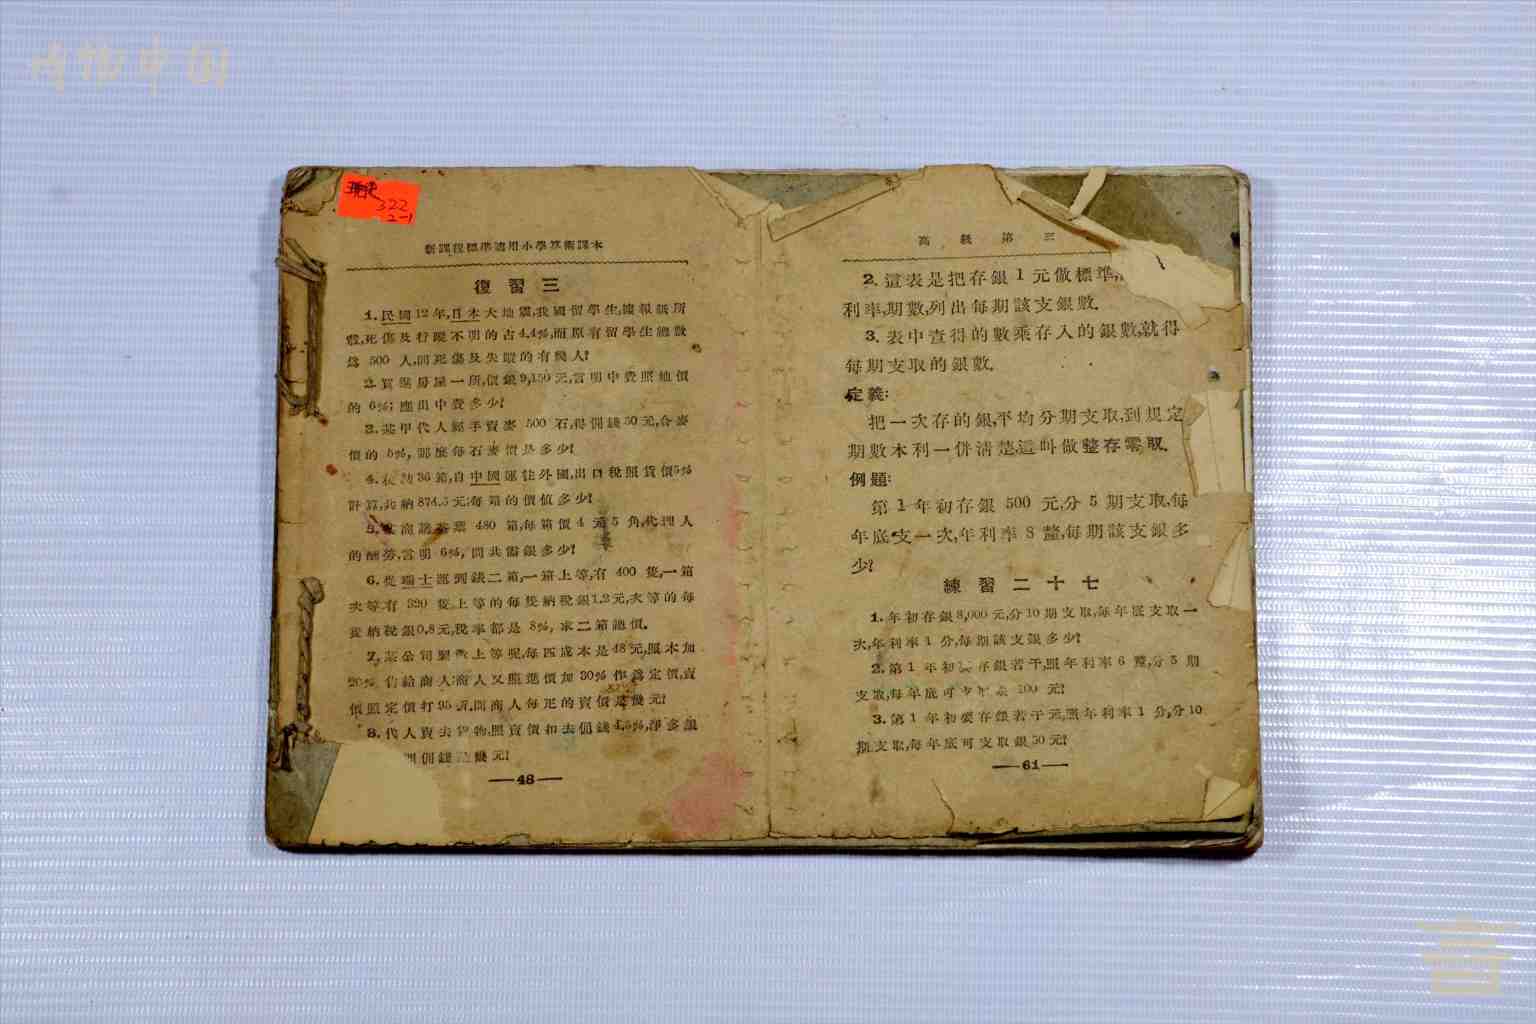 博物中国
322
2-1
新課程標準適用小學算術課本
復習三
1.民國12年,日本大地震,我國留學生,據報紙所
載,死傷及行蹤不明的占4.4%,而原有留學生總數
為 500 人,問死傷及失蹤的有幾人?
2.買進房屋一所,價銀9,150元,言明中費照總價
的 6%;應出中費多少?
3.某甲代人經手賣麥 500 石,得佣錢50元,合麥
價的 5%,問麥每石麥價是多少?
36箱,自中國運往外國,出口稅照貨價5%
計算,共納874.5元;每箱的價值多少?
5.茶商 480 箱,每箱價4元5角,代理人
的酬勞,言明 6%,問共需銀多少?
6.從瑞士運到錶二箱,一箱上等,有 400 隻,一箱
次等,有 320 隻,上等的每隻納稅銀1.2元,次等的每
隻納稅銀0.8元,稅率都是 8%,求二箱總價.
7.某公司製上等呢,每匹成本是48元,照本加
20% 售給商人;商人又照進價加30%作為定價,賣
價照定價打95折,問商人每疋的賣價是幾元?
8.代人賣去貨物,照賣價扣去佣錢4.5%,淨多銀
問佣錢是幾元?
—48—
高級第三
2.這表是把存銀1元做標準,
利率,期數,列出每期該支銀數.
3.表中查得的數乘存入的銀數,就得
每期支取的銀數.
定義:
把一次存的銀,平均分期支取,到規定
期數本利一併清楚,這叫做整存零取.
例題:
第1年初存銀 500 元,分5期支取,每
年底支一次,年利率8釐,每期該支銀多
少?
練習二十七
1.年初存銀8,000元,分10期支取,每年底支取一
次,年利率1分,每期該支銀多少?
2.第1年初存銀若干,照年利率6釐,分5期
支取,每年底可支銀 200 元?
3.第1年初要存銀若干元,照年利率1分,分10
期支取,每年底可支取銀50元?
—61—